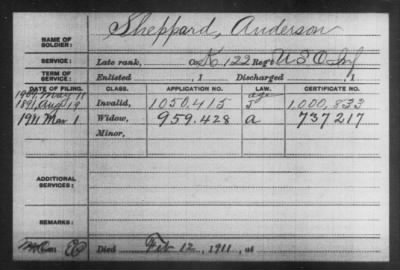 NAME OF SOLDIER: Sheppard, Anderson
SERVICE: Late rank, Co. K, 122 Reg't U S C Inf
TERM OF SERVICE: Enlisted , 1 Discharged , 1
DATE OF FILING. CLASS. APPLICATION NO. LAW. CERTIFICATE NO.
1907, May 11 age
1891, Aug 19 Invalid, 1050,415 J 1,000,833
1911 Mar 1 Widow, 959.428 a 737217
Minor,
ADDITIONAL SERVICES:
REMARKS:
Died Feb 12, 1911, at